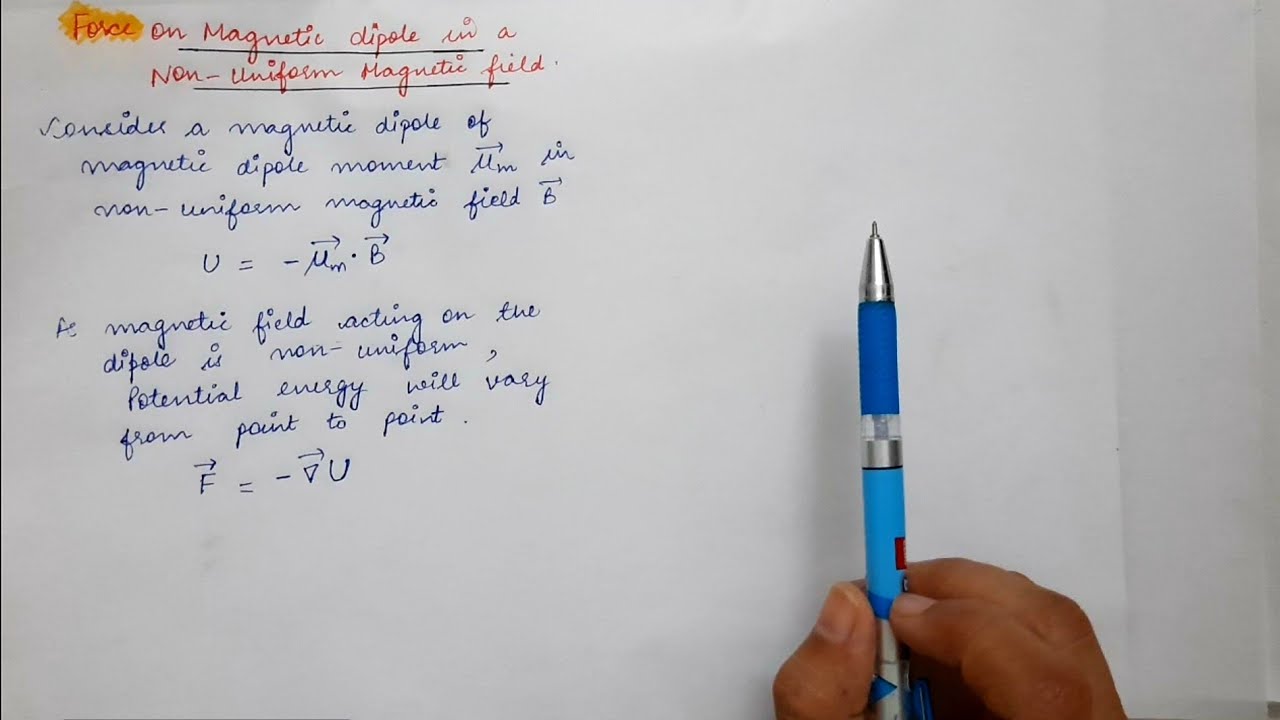 Force on Magnetic dipole in a
Non-Uniform Magnetic field.
Consider a magnetic dipole of
magnetic dipole moment $\vec{\mu}_m$ in
non-uniform magnetic field $\vec{B}$
U = $-\vec{\mu}_m \cdot \vec{B}$
As magnetic field acting on the
dipole is non-uniform,
Potential energy will vary
from point to point.
$\vec{F} = -\vec{\nabla} U$